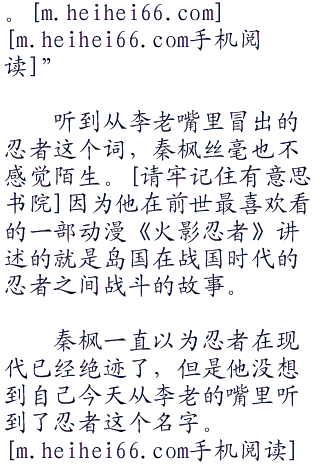 。[m.heihei66.com]
[m.heihei66.com手机阅
读]”
听到从李老嘴里冒出的
忍者这个词，秦枫丝毫也不
感觉陌生。[请牢记住有意思
书院]因为他在前世最喜欢看
的一部动漫《火影忍者》讲
述的就是岛国在战国时代的
忍者之间战斗的故事。
秦枫一直以为忍者在现
代已经绝迹了，但是他没想
到自己今天从李老的嘴里听
到了忍者这个名字。
[m.heihei66.com手机阅读]